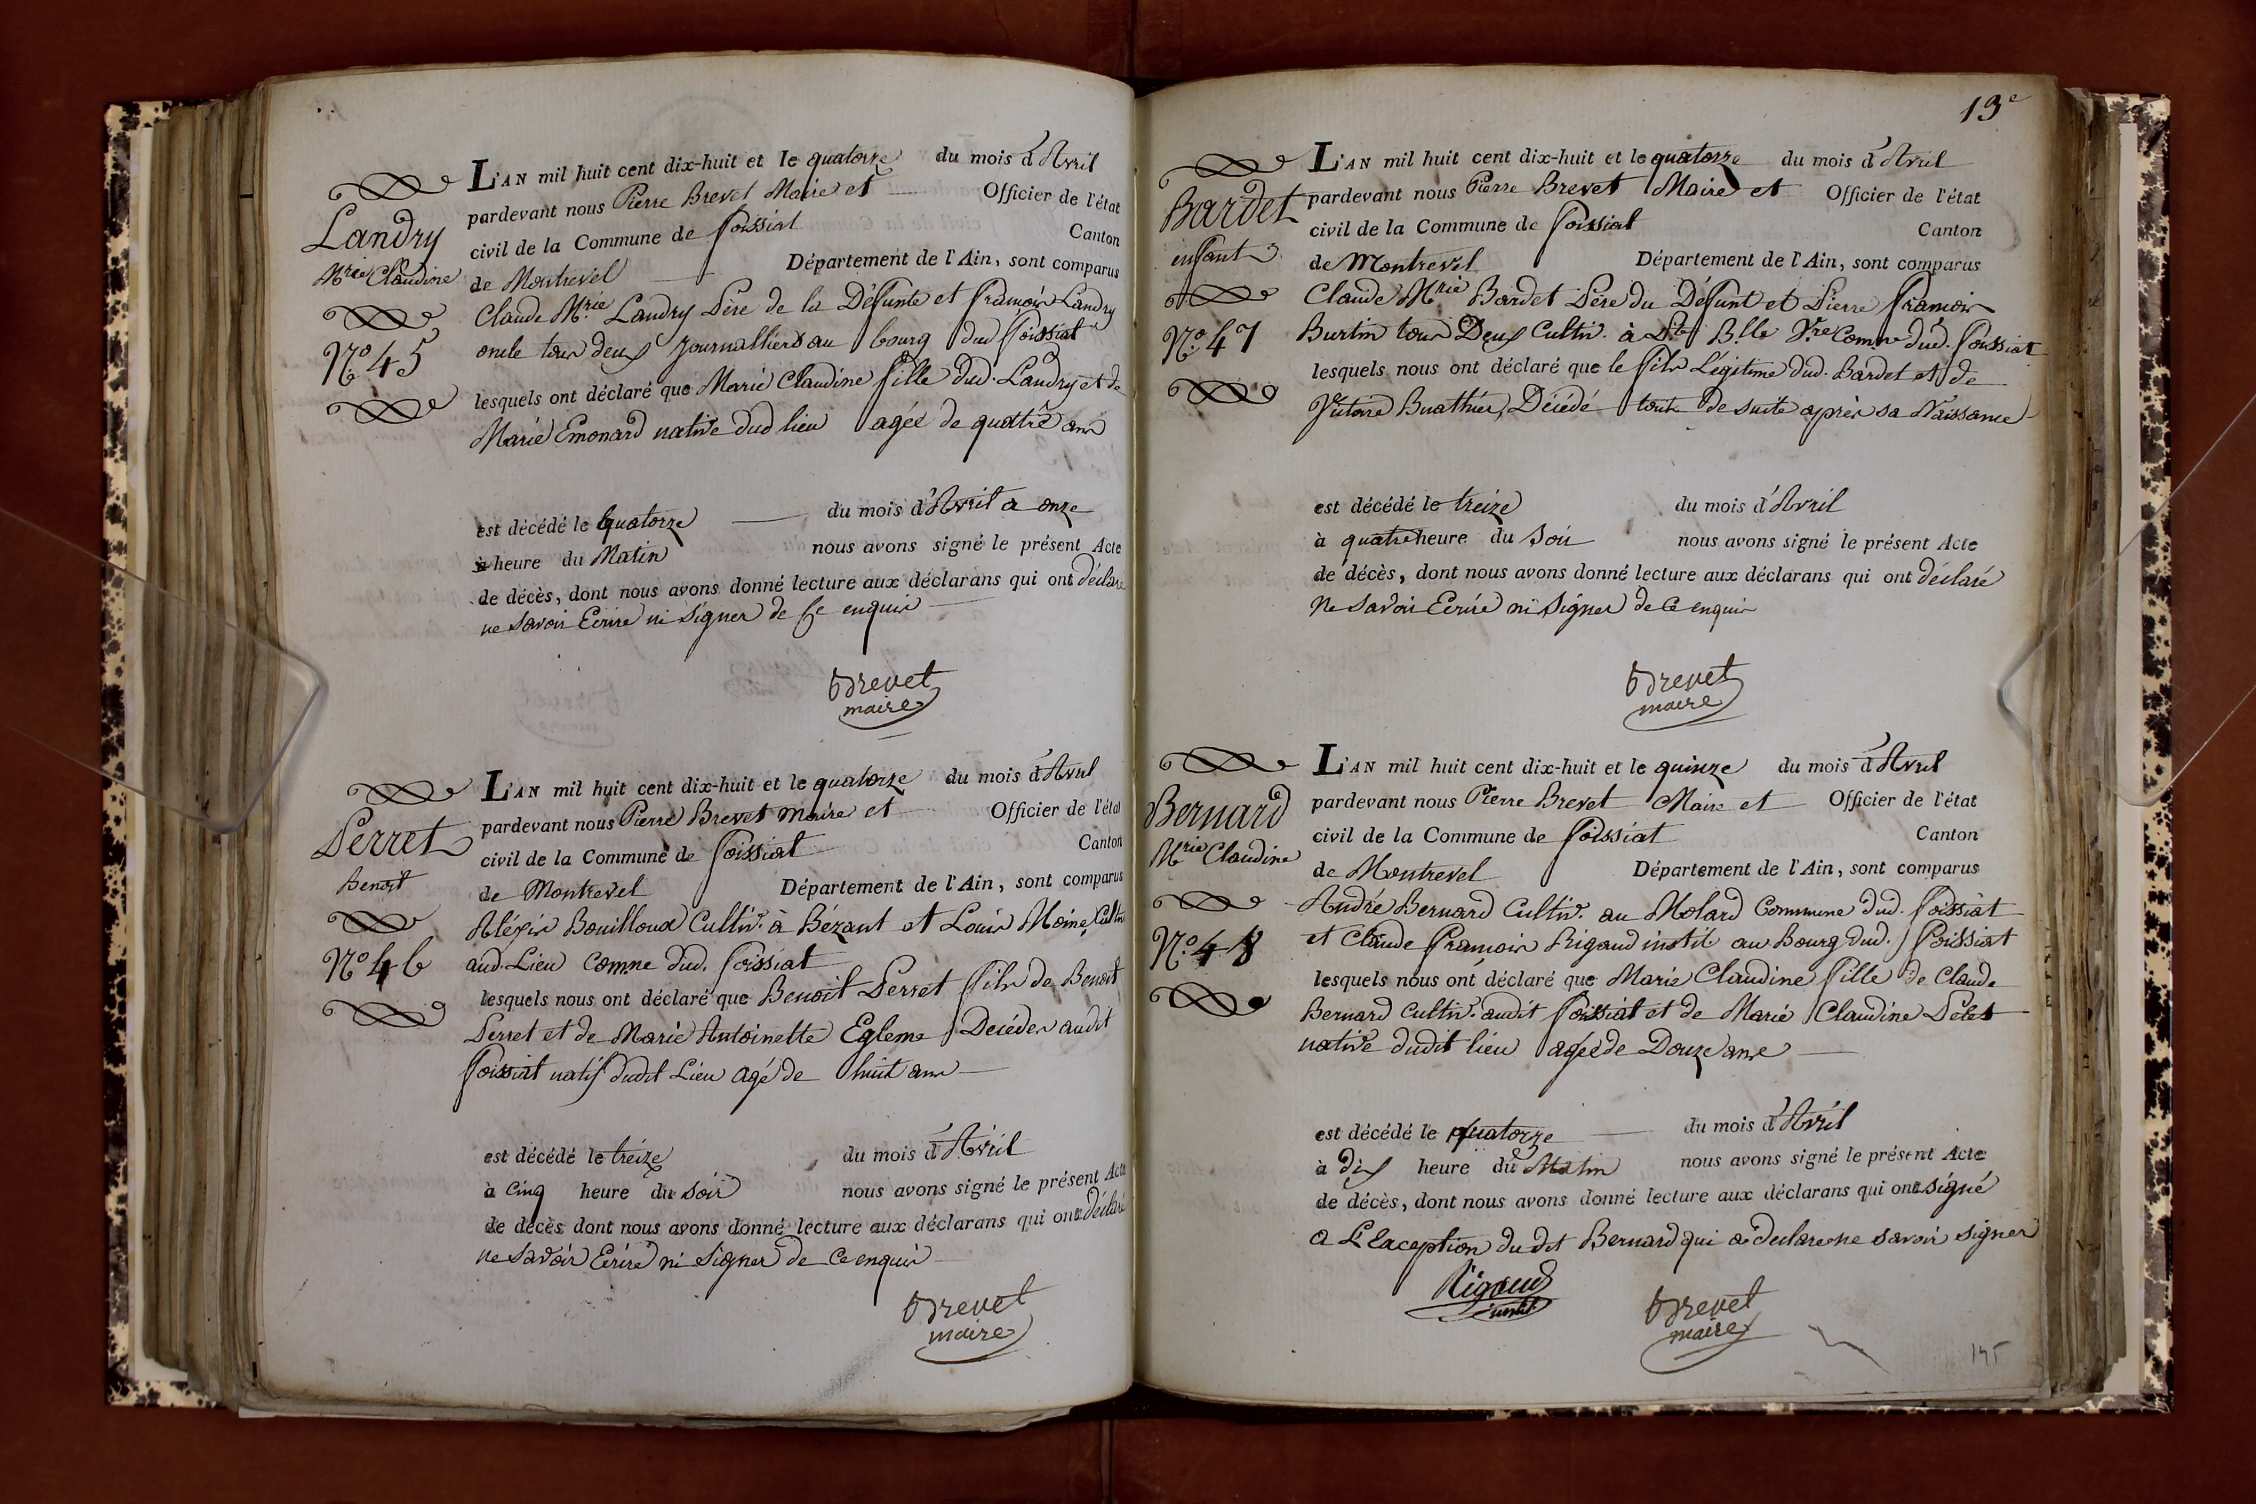 Landry
Mrie Claudine
No 45
L'AN mil huit cent dix-huit et le quatorze du mois d'Avril
pardevant nous Pierre Brevet Maire et Officier de l'état
civil de la Commune de foissiat Canton
de Montrevel Département de l'Ain, sont comparus
Claude Mrie Landry Père de la Défunte et françois Landry
oncle tous deux journalliers au bourg dud foissiat
lesquels ont déclaré que Marie Claudine fille dud. Landry et de
Marie Emonard native dud lieu agée de quatre ans
est décédé le quatorze du mois d'Avril a onze
heure du Matin nous avons signé le présent Acte
de décès, dont nous avons donné lecture aux déclarans qui ont déclaré
ne savoir Ecrire ni signer de Ce enquis
Brevet
maire
Perret
Benoit
No 46
L'AN mil huit cent dix-huit et le quatorze du mois d'Avril
pardevant nous Pierre Brevet maire et Officier de l'état
civil de la Commune de foissiat Canton
de Montrevel Département de l'Ain, sont comparus
Aléxis Bouilloux Cultiv. à Bézant et Louis Moine Cultiv
aud. Lieu Comne dud. foissiat
lesquels nous ont déclaré que Benoit Perret fils de Benoit
Perret et de Marie Antoinette Egleme Decédés audit
foissiat natif dudit Lieu agé de huit ans
est décédé le treize du mois d'Avril
à Cinq heure du soir nous avons signé le présent Acte
de décès dont nous avons donné lecture aux déclarans qui ont déclaré
ne savoir Ecrire ni signer de Ce enquis
Brevet
maire
13e
Bardet
enfant
No. 47
L'AN mil huit cent dix-huit et le quatorze du mois d'Avril
pardevant nous Pierre Brevet Maire et Officier de l'état
civil de la Commune de foissiat Canton
de Montrevel Département de l'Ain, sont comparus
Claude Mrie Bardet Père du Défunt et Pierre françois
Burtin tous Deux Cultiv. à Comne dud. foissiat
lesquels nous ont déclaré que le fils Légitime dud. Bardet et de
Victoire Buathier, Décédé toute de suite après sa Naissance
est décédé le treize du mois d'Avril
à quatre heure du soir nous avons signé le présent Acte
de décès, dont nous avons donné lecture aux déclarans qui ont déclaré
Ne savoir Ecrire ni signer de Ce enquis
Brevet
maire
Bernard
Mrie Claudine
No. 48
L'AN mil huit cent dix-huit et le quinze du mois d'Avril
pardevant nous Pierre Brevet Maire et Officier de l'état
civil de la Commune de foissiat Canton
de Montrevel Département de l'Ain, sont comparus
André Bernard Cultiv. au Molard Commune dud. foissiat
et Claude françois Rigaud instit au Bourg dud. foissiat
lesquels nous ont déclaré que Marie Claudine fille de Claude
Bernard Cultiv. audit foissiat et de Marie Claudine
native dudit lieu agée de Douze ans
est décédé le quatorze du mois d'Avril
à dix heure du Matin nous avons signé le présent Acte
de décès, dont nous avons donné lecture aux déclarans qui ont signé
a L'Exception du dit Bernard qui a declaré ne savoir signer
Rigaud
instit
Brevet
maire